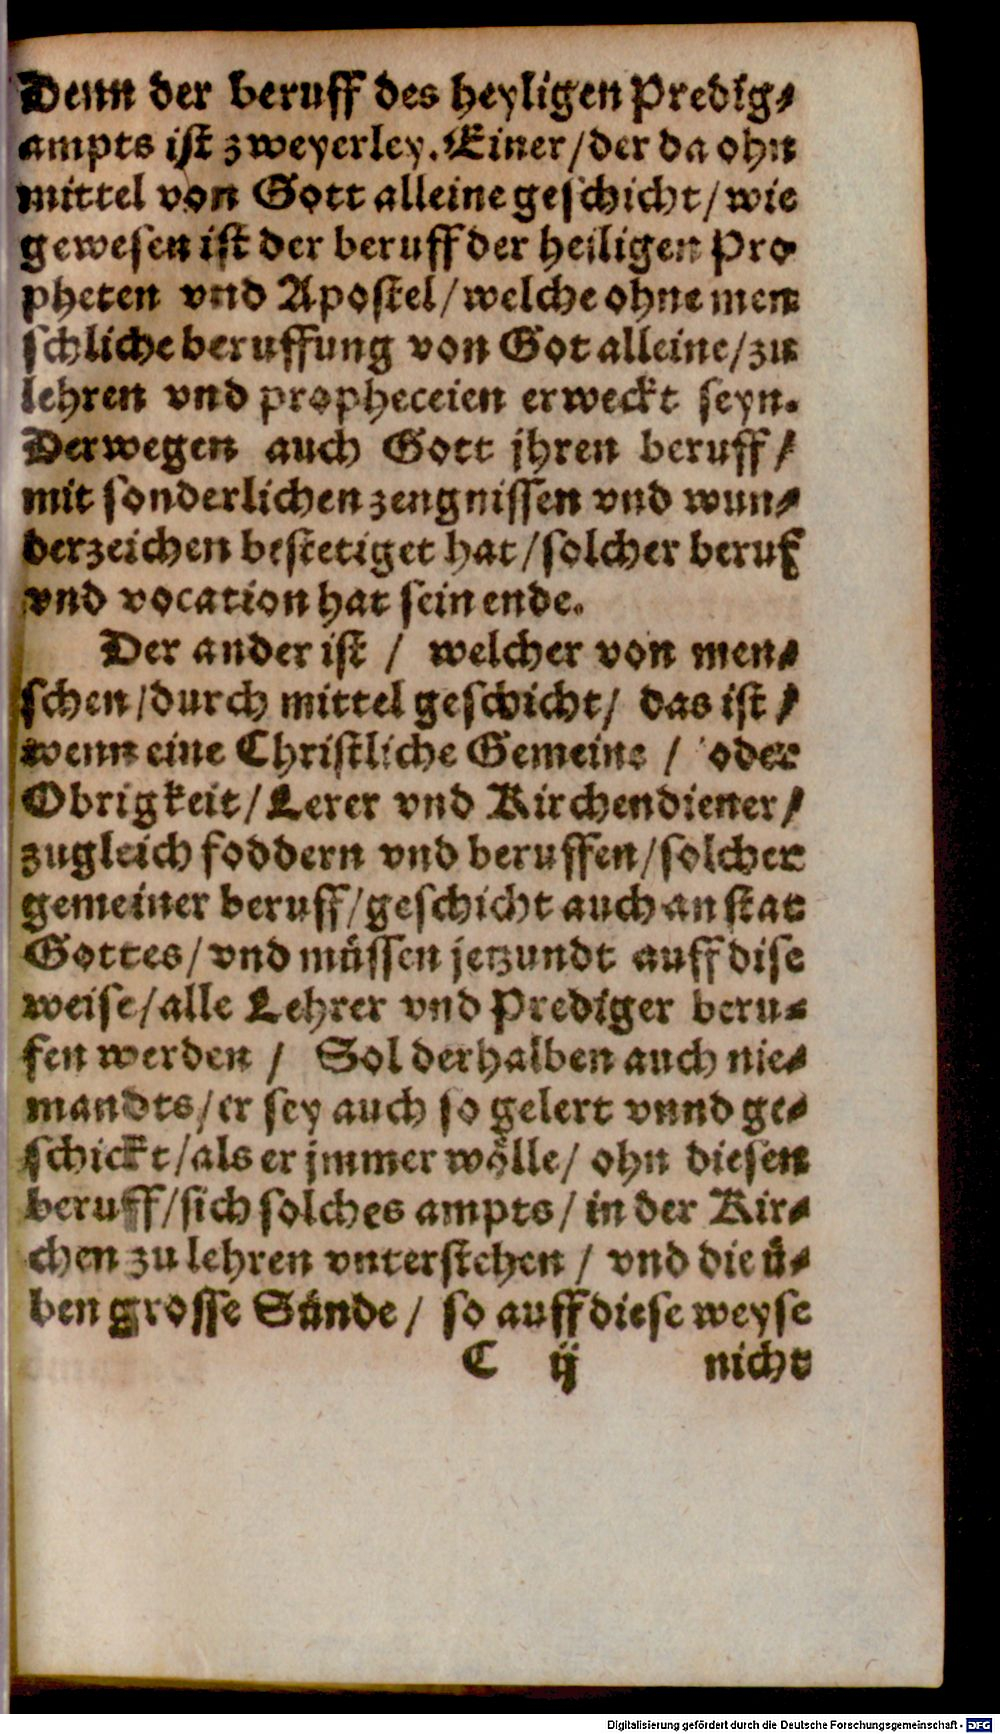 Denn der beruff des heyligen Predig-
ampts ist zweyerley. Einer/der da ohn
mittel von Gott alleine geschicht/wie
gewesen ist der beruff der heiligen Pro
pheten vnd Apostel/welche ohne men
schliche beruffung von Got alleine/zu
lehren vnd propheceien erweckt seyn.
Derwegen auch Gott jhren beruff/
mit sonderlichen zengnissen vnd wun-
derzeichen bestetiget hat/solcher beruf
vnd vocation hat sein ende.
Der ander ist / welcher von men-
schen/durch mittel geschicht/ das ist/
wenn eine Christliche Gemeine / oder
Obrigkeit/Lerer vnd Kirchendiener/
zugleich foddern vnd beruffen/solcher
gemeiner beruff/geschicht auch an stat
Gottes/vnd müssen jetzundt auff dise
weise/alle Lehrer vnd Prediger beru-
fen werden / Sol derhalben auch nie-
mandts/er sey auch so gelert vnnd ge-
schickt/als er jmmer wölle/ ohn diesen
beruff/sich solches ampts/in der Kir-
chen zu lehren vnterstehen / vnd die ü-
ben grosse Sünde/ so auff diese weyse
C ij nicht
Digitalisierung gefördert durch die Deutsche Forschungsgemeinschaft - DFG